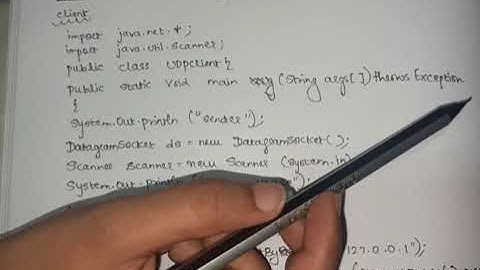 client
import java.net.*;
import java.util.Scanner;
public class UDPclient{
public static void main (String args[])throws Exception
{
System.out.println ("sender");
DatagramSocket ds=new DatagramSocket();
Scanner scanner=new Scanner (system.in)
System.out.println ");
127.0.0.1");